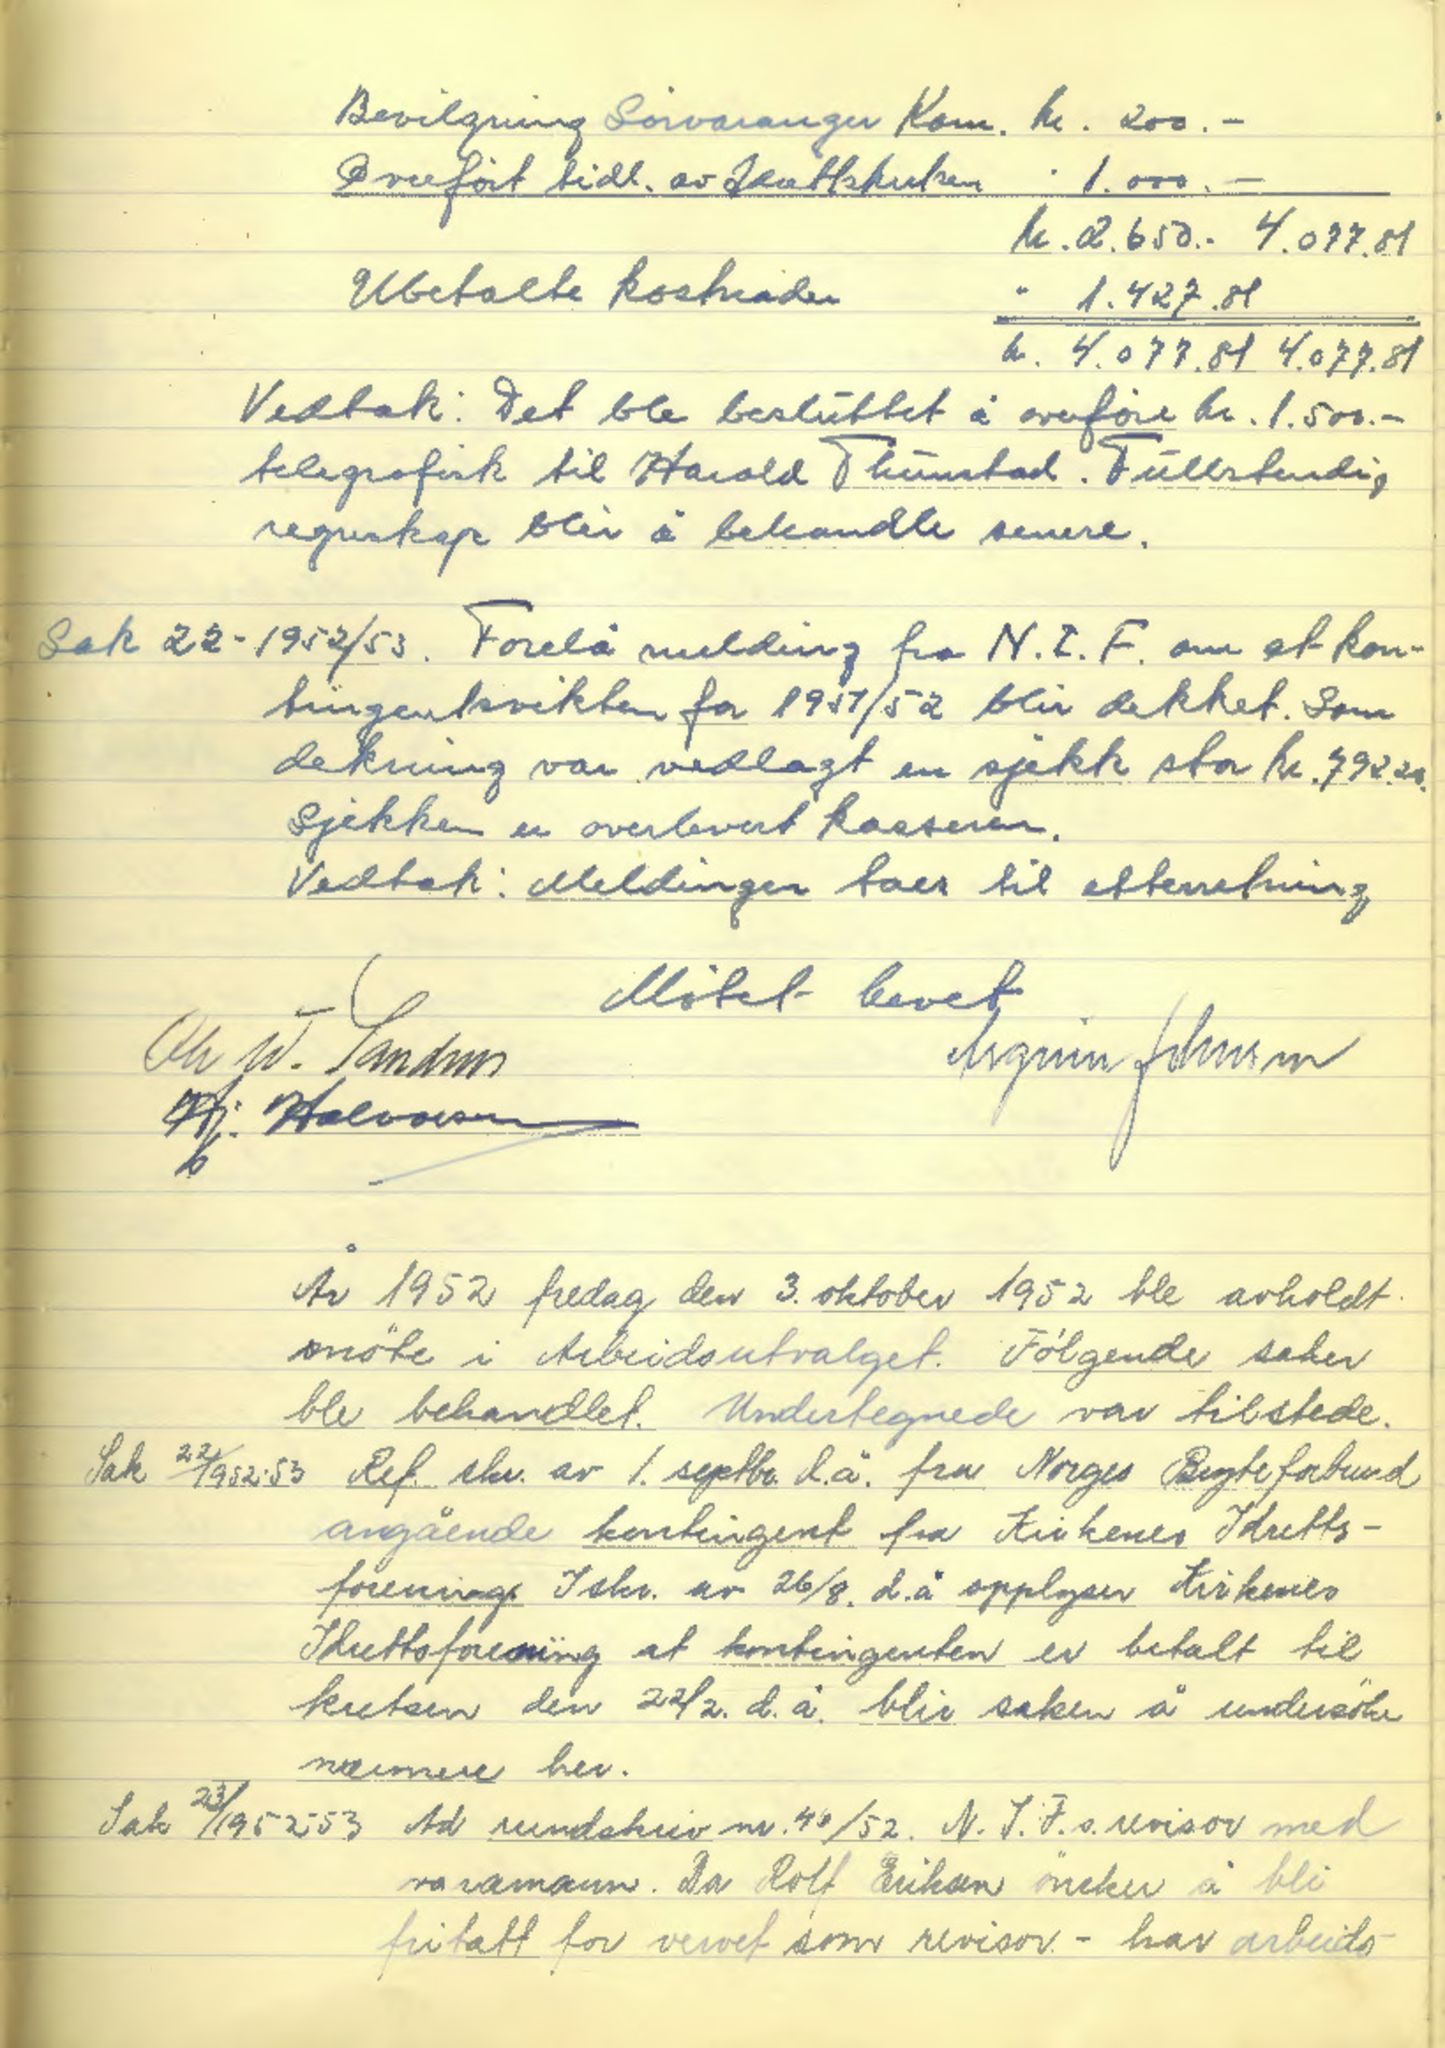 Bevilgning Sörvaranger Kom. kr. 200.-
Overfört tidl. av Idrettskretsen " 1.000.-
kr. 2.650.- 4.077.81
Ubetalte kostnader " 1.427.81
kr. 4.077.81 4.077.81
Vedtak: Det ble besluttet å overföre kr. 1.500.-
telegrafisk til Harald Thunstad. Fullstendig
regnskap blir å behandle senere.
Sak 22-1952/53. Forelå melding fra N.I.F. om at kon-
tingentsvikten for 1951/52 blir dekket. Som
dekning var vedlagt en sjekk stor kr. 792.20.
Sjekken er overlevert kasseren.
Vedtak: Meldingen taes til etterretning
Mötet hevet
W. Sandnes
Hj. Halvorsen
Asgrim Johnsen
År 1952 fredag den 3. oktober 1952 ble avholdt
möte i Arbeidsutvalget. Fölgende saker
ble behandlet. Undertegnede var tilstede.
Sak 22/1952-53 Ref. skr. av 1. septbr. d.å. fra Norges Bryteforbund
angående kontingent fra Kirkenes Idretts-
forening. I skr. av 26/8. d.å opplyser Kirkenes
Idrettsforening at kontingenten er betalt til
kretsen den 22/2. d.å. blir saken å undersöke
nærmere her.
Sak 23/1952-53 Ad rundskriv nr. 46/52. N.I.F.s. revisor med
varamann. Da Rolf Eriksen önsker å bli
fritatt for vervet som revisor - har arbeids-